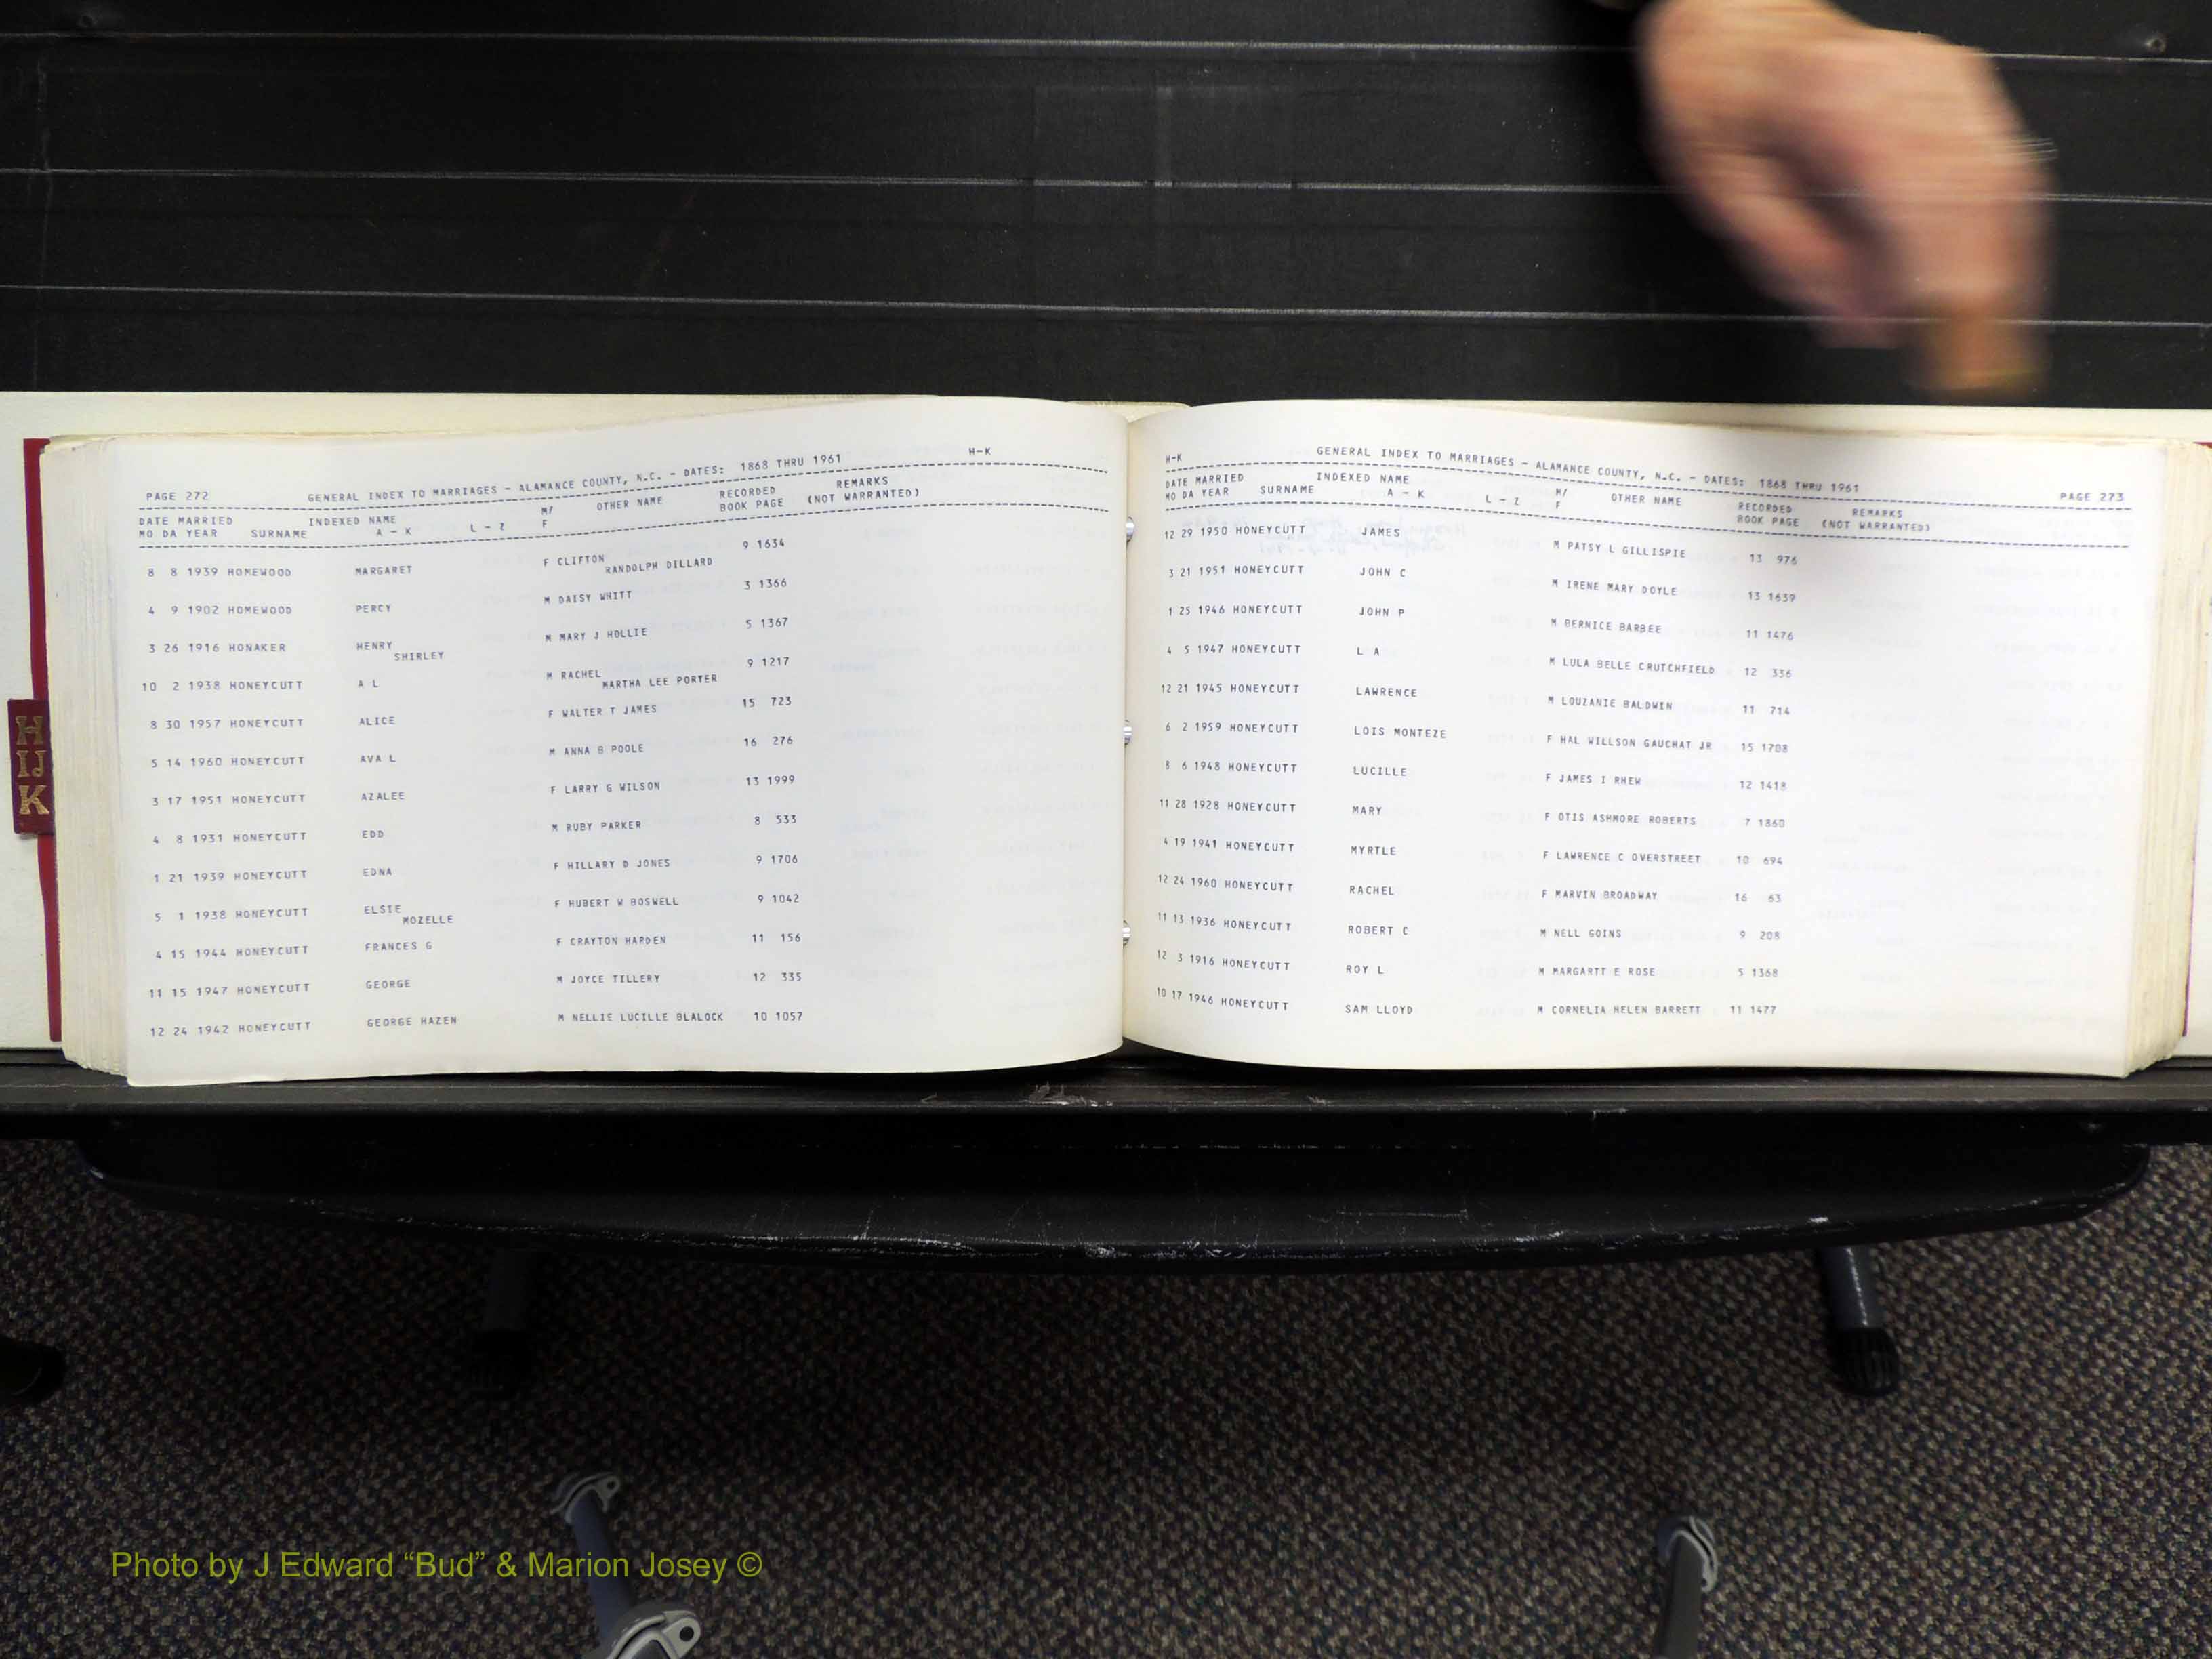 PAGE 272 GENERAL INDEX TO MARRIAGES - ALAMANCE COUNTY, N.C. - DATES: 1868 THRU 1961 H-K
DATE MARRIED INDEXED NAME M/ OTHER NAME RECORDED REMARKS
MO DA YEAR SURNAME A - K L - Z F BOOK PAGE (NOT WARRANTED)
8 8 1939 HOMEWOOD MARGARET F CLIFTON 9 1634
RANDOLPH DILLARD
4 9 1902 HOMEWOOD PERCY M DAISY WHITT 3 1366
3 26 1916 HONAKER HENRY M MARY J HOLLIE 5 1367
SHIRLEY
10 2 1938 HONEYCUTT A L M RACHEL 9 1217
MARTHA LEE PORTER
8 30 1957 HONEYCUTT ALICE F WALTER T JAMES 15 723
5 14 1960 HONEYCUTT AVA L M ANNA B POOLE 16 276
3 17 1951 HONEYCUTT AZALEE F LARRY G WILSON 13 1999
4 8 1931 HONEYCUTT EDD M RUBY PARKER 8 533
1 21 1939 HONEYCUTT EDNA F HILLARY D JONES 9 1706
5 1 1938 HONEYCUTT ELSIE F HUBERT W BOSWELL 9 1042
MOZELLE
4 15 1944 HONEYCUTT FRANCES G F CRAYTON HARDEN 11 156
11 15 1947 HONEYCUTT GEORGE M JOYCE TILLERY 12 335
12 24 1942 HONEYCUTT GEORGE HAZEN M NELLIE LUCILLE BLALOCK 10 1057
H-K GENERAL INDEX TO MARRIAGES - ALAMANCE COUNTY, N.C. - DATES: 1868 THRU 1961 PAGE 273
DATE MARRIED INDEXED NAME M/ OTHER NAME RECORDED REMARKS
MO DA YEAR SURNAME A - K L - Z F BOOK PAGE (NOT WARRANTED)
12 29 1950 HONEYCUTT JAMES M PATSY L GILLISPIE 13 976
3 21 1951 HONEYCUTT JOHN C M IRENE MARY DOYLE 13 1639
1 25 1946 HONEYCUTT JOHN P M BERNICE BARBEE 11 1476
4 5 1947 HONEYCUTT L A M LULA BELLE CRUTCHFIELD 12 336
12 21 1945 HONEYCUTT LAWRENCE M LOUZANIE BALDWIN 11 714
6 2 1959 HONEYCUTT LOIS MONTEZE F HAL WILLSON GAUCHAT JR 15 1708
8 6 1948 HONEYCUTT LUCILLE F JAMES I RHEW 12 1418
11 28 1928 HONEYCUTT MARY F OTIS ASHMORE ROBERTS 7 1860
4 19 1941 HONEYCUTT MYRTLE F LAWRENCE C OVERSTREET 10 694
12 24 1960 HONEYCUTT RACHEL F MARVIN BROADWAY 16 63
11 13 1936 HONEYCUTT ROBERT C M NELL GOINS 9 208
12 3 1916 HONEYCUTT ROY L M MARGARTT E ROSE 5 1368
10 17 1946 HONEYCUTT SAM LLOYD M CORNELIA HELEN BARRETT 11 1477
H
IJ
K
Photo by J Edward “Bud” & Marion Josey ©